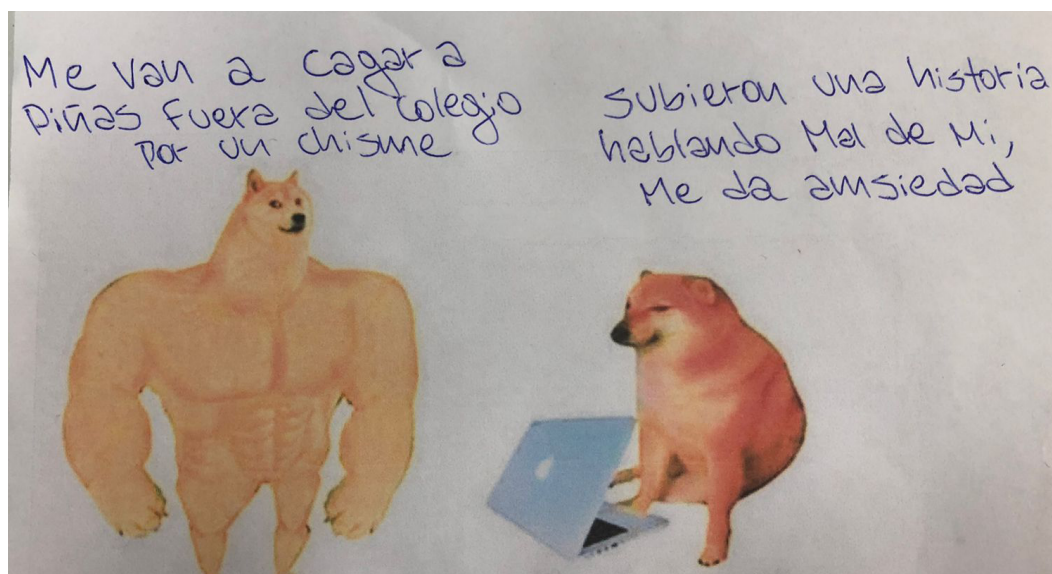 Me van a cagar a
Piñas fuera del colegio
por un chisme
subieron una historia
hablando Mal de Mi,
Me da amsiedad